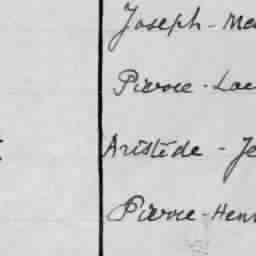 Joseph - Me
Pierre - Lae
Aristide - Je
Pierre - Hen